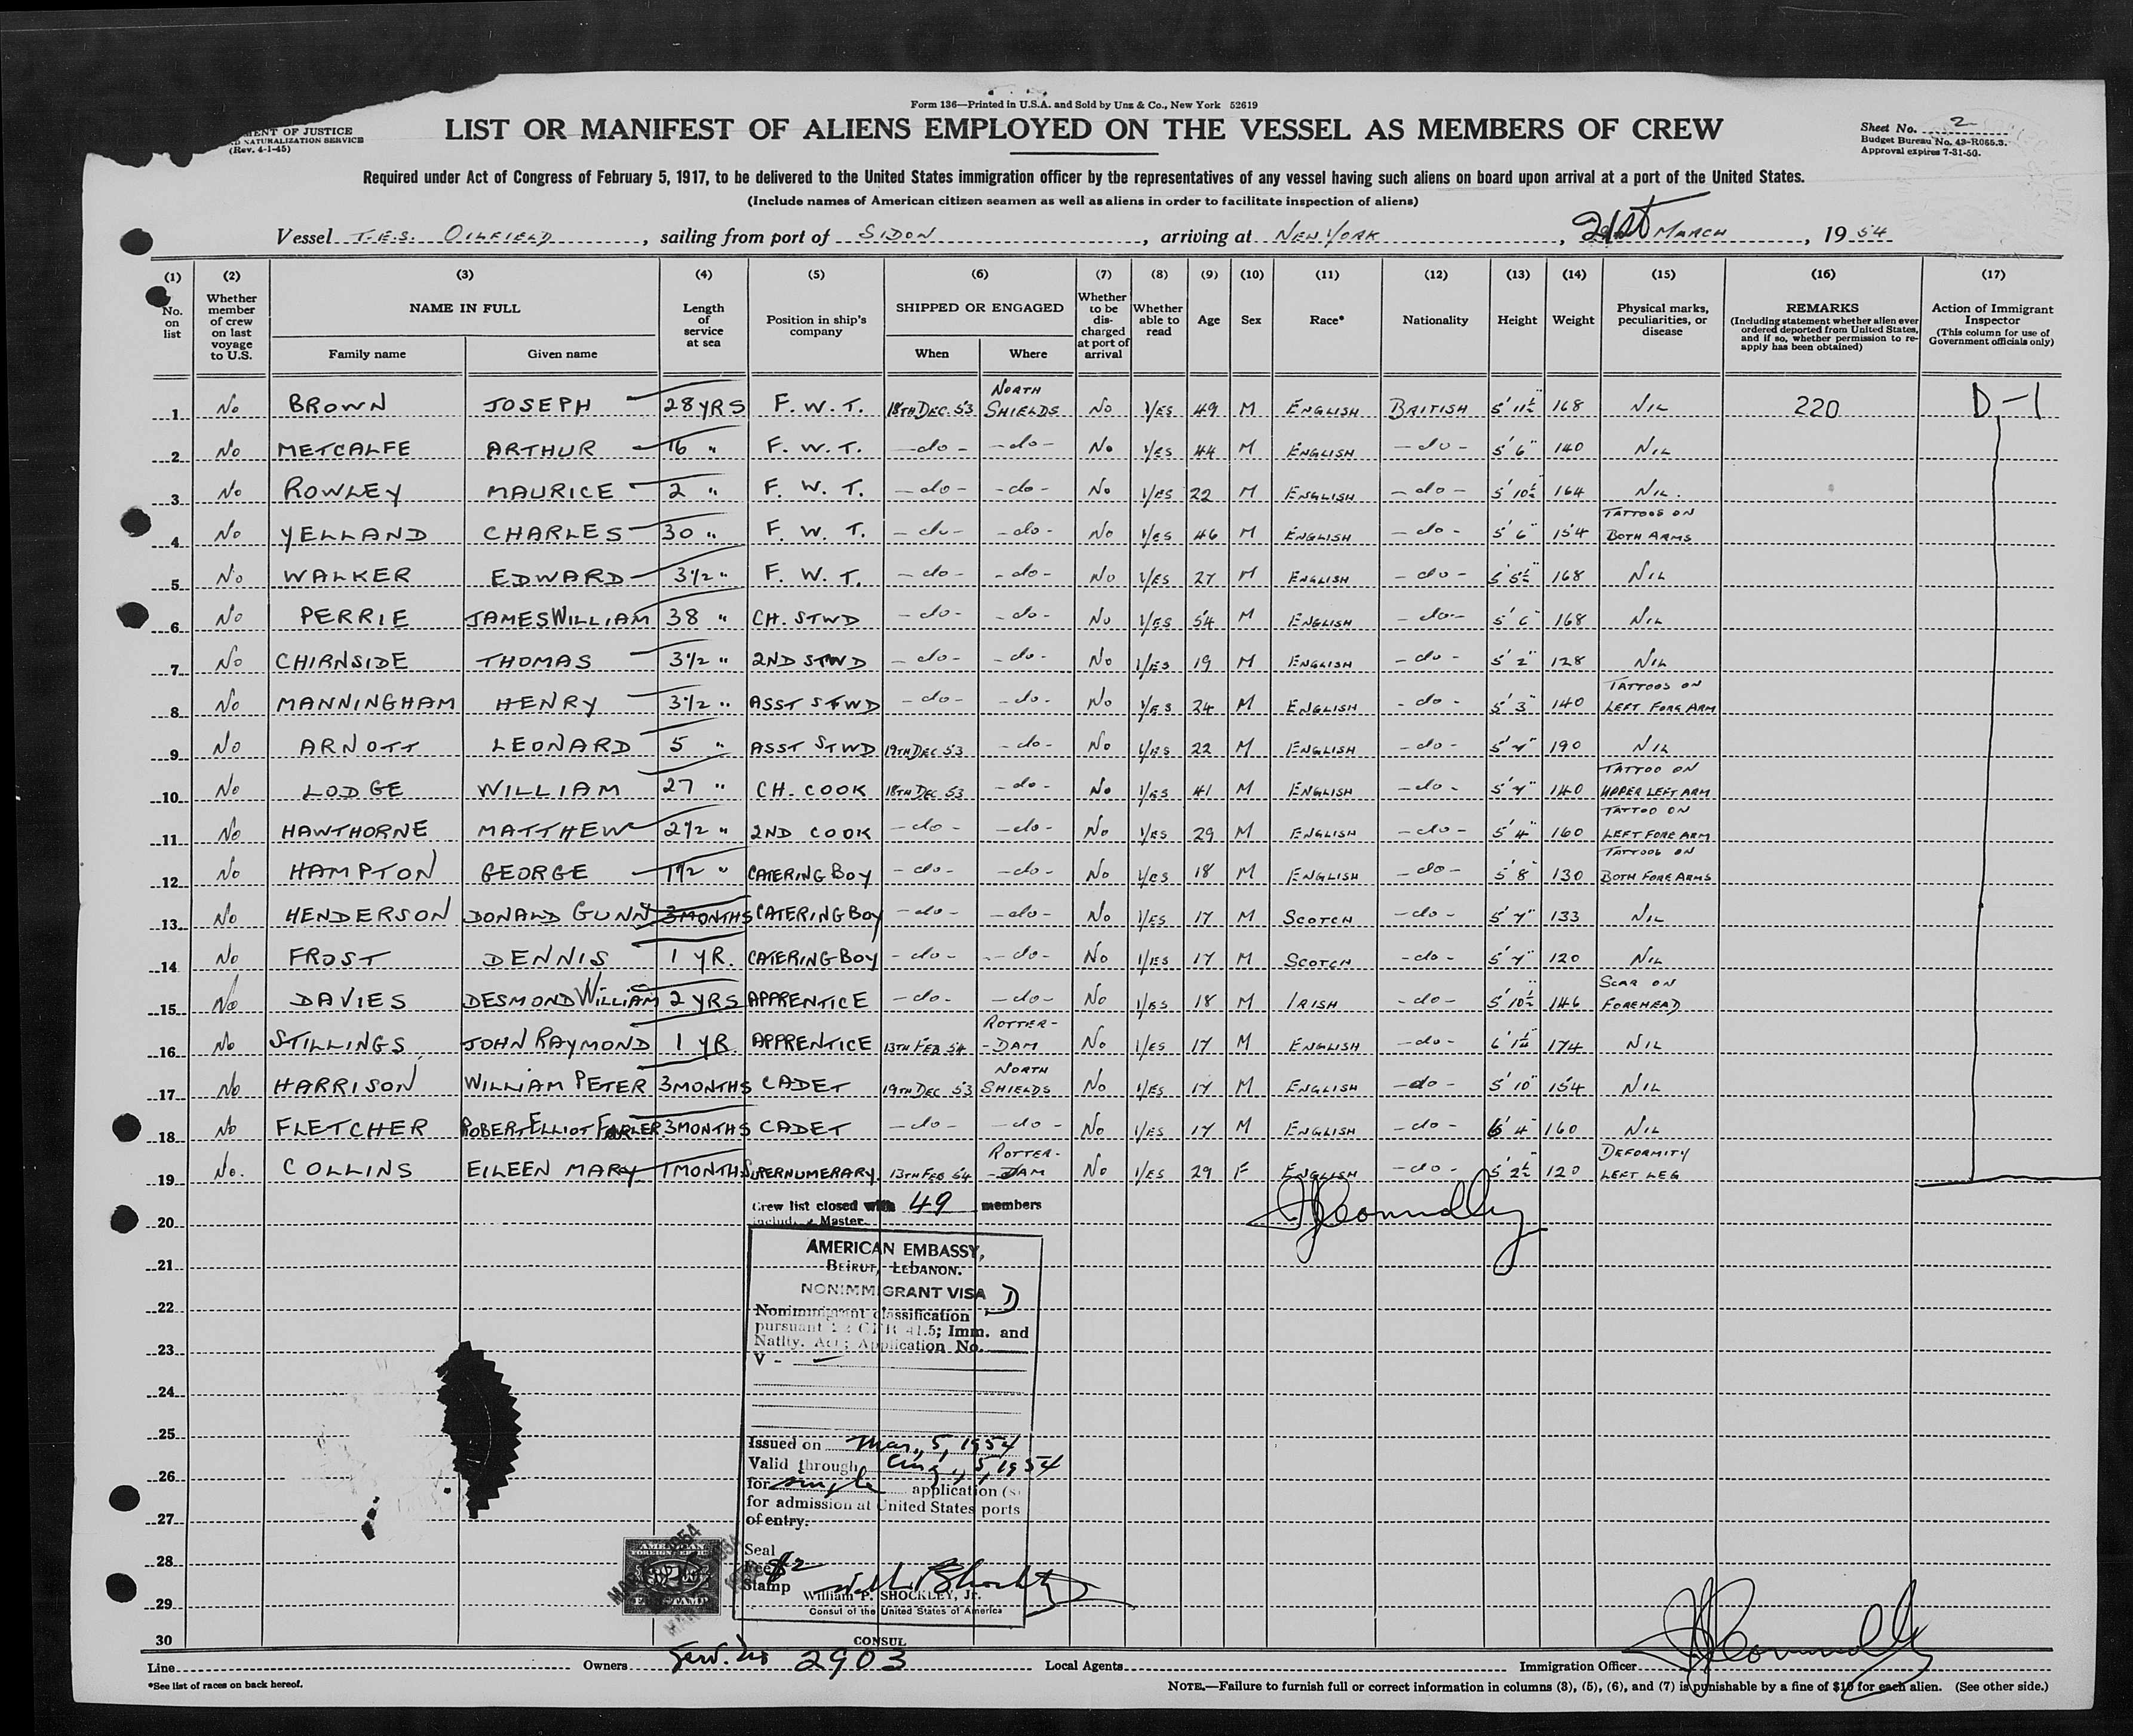 Form 136—Printed in U.S.A. and Sold by Unz & Co., New York 52619
MENT OF JUSTICE
D NATURALIZATION SERVICE
(Rev. 4-1-45)
LIST OR MANIFEST OF ALIENS EMPLOYED ON THE VESSEL AS MEMBERS OF CREW
Sheet No. 2
Budget Bureau No. 43-R065.3.
Approval expires 7-31-50.
Required under Act of Congress of February 5, 1917, to be delivered to the United States immigration officer by the representatives of any vessel having such aliens on board upon arrival at a port of the United States.
(Include names of American citizen seamen as well as aliens in order to facilitate inspection of aliens)
Vessel T.E.S. OILFIELD, sailing from port of SIDON, arriving at NEW YORK, 21st MARCH, 1954
(1) (2) (3) (4) (5) (6) (7) (8) (9) (10) (11) (12) (13) (14) (15) (16) (17)
No. on list
Whether member of crew on last voyage to U.S.
NAME IN FULL
Family name
Given name
Length of service at sea
Position in ship's company
SHIPPED OR ENGAGED
When
Where
Whether to be discharged at port of arrival
Whether able to read
Age
Sex
Race*
Nationality
Height
Weight
Physical marks, peculiarities, or disease
REMARKS
(Including statement whether alien ever ordered deported from United States, and if so, whether permission to re-apply has been obtained)
Action of Immigrant Inspector
(This column for use of Government officials only)
1 No BROWN JOSEPH 28 YRS F.W.T. 18TH DEC. 53 NORTH SHIELDS No YES 49 M ENGLISH BRITISH 5' 11½" 168 NIL 220 D-1
2 No METCALFE ARTHUR 16 " F.W.T. -do- -do- No YES 44 M ENGLISH -do- 5' 6" 140 NIL
3 No ROWLEY MAURICE 2 " F.W.T. -do- -do- No YES 22 M ENGLISH -do- 5' 10½" 164 NIL.
4 No YELLAND CHARLES 30 " F.W.T. -do- -do- No YES 46 M ENGLISH -do- 5' 6" 154 TATTOOS ON BOTH ARMS
5 No WALKER EDWARD 3½ " F.W.T. -do- -do- No YES 27 M ENGLISH -do- 5' 5½" 168 NIL
6 No PERRIE JAMES WILLIAM 38 " CH. STWD -do- -do- No YES 54 M ENGLISH -do- 5' 6" 168 NIL
7 No CHIRNSIDE THOMAS 3½ " 2ND STWD -do- -do- No YES 19 M ENGLISH -do- 5' 2" 128 NIL
8 No MANNINGHAM HENRY 3½ " ASST STWD -do- -do- No YES 24 M ENGLISH -do- 5' 3" 140 TATTOOS ON LEFT FORE ARM
9 No ARNOTT LEONARD 5 " ASST STWD 19TH DEC 53 -do- No YES 22 M ENGLISH -do- 5' 7" 190 NIL
10 No LODGE WILLIAM 27 " CH. COOK 18TH DEC 53 -do- No YES 41 M ENGLISH -do- 5' 7" 140 TATTOO ON UPPER LEFT ARM
11 No HAWTHORNE MATTHEW 2½ " 2ND COOK -do- -do- No YES 29 M ENGLISH -do- 5' 4" 160 TATTOO ON LEFT FORE ARM
12 No HAMPTON GEORGE 1½ " CATERING BOY -do- -do- No YES 18 M ENGLISH -do- 5' 8" 130 TATTOOS ON BOTH FORE ARMS
13 No HENDERSON DONALD GUNN 3 MONTHS CATERING BOY -do- -do- No YES 17 M SCOTCH -do- 5' 7" 133 NIL
14 No FROST DENNIS 1 YR. CATERING BOY -do- -do- No YES 17 M SCOTCH -do- 5' 7" 120 NIL
15 No DAVIES DESMOND WILLIAM 2 YRS APPRENTICE -do- -do- No YES 18 M IRISH -do- 5' 10½" 146 SCAR ON FOREHEAD
16 No STILLINGS JOHN RAYMOND 1 YR. APPRENTICE 13TH FEB 54 ROTTER-DAM No YES 17 M ENGLISH -do- 6' 1½" 174 NIL
17 No HARRISON WILLIAM PETER 3 MONTHS CADET 19TH DEC 53 NORTH SHIELDS No YES 17 M ENGLISH -do- 5' 10" 154 NIL
18 No FLETCHER ROBERT ELLIOT 3 MONTHS CADET -do- -do- No YES 17 M ENGLISH -do- 6' 4" 160 NIL
19 No. COLLINS EILEEN MARY 1 MONTH SUPERNUMERARY 13TH FEB 54 ROTTER-DAM No YES 29 F ENGLISH -do- 5' 2½" 120 DEFORMITY LEFT LEG
20
21
22
23
24
25
26
27
28
29
30
Crew list closed with 49 members
includ Master
AMERICAN EMBASSY,
BEIRUT, LEBANON.
NONIMMIGRANT VISA D
Nonimmigrant classification
pursuant 22 CFR 41.5; Imm. and
Natlty. Act; Application No.
V -
Issued on Mar. 5, 1954
Valid through Aug., 5, 1954
for single application (s)
for admission at United States ports
of entry.
Seal
Fee $2
Stamp
William P. SHOCKLEY, Jr.
Consul of the United States of America
CONSUL
AMERICAN
STAMP
Line
Owners Serv. No 2903
Local Agents
Immigration Officer
*See list of races on back hereof.
NOTE.—Failure to furnish full or correct information in columns (3), (5), (6), and (7) is punishable by a fine of $10 for each alien. (See other side.)